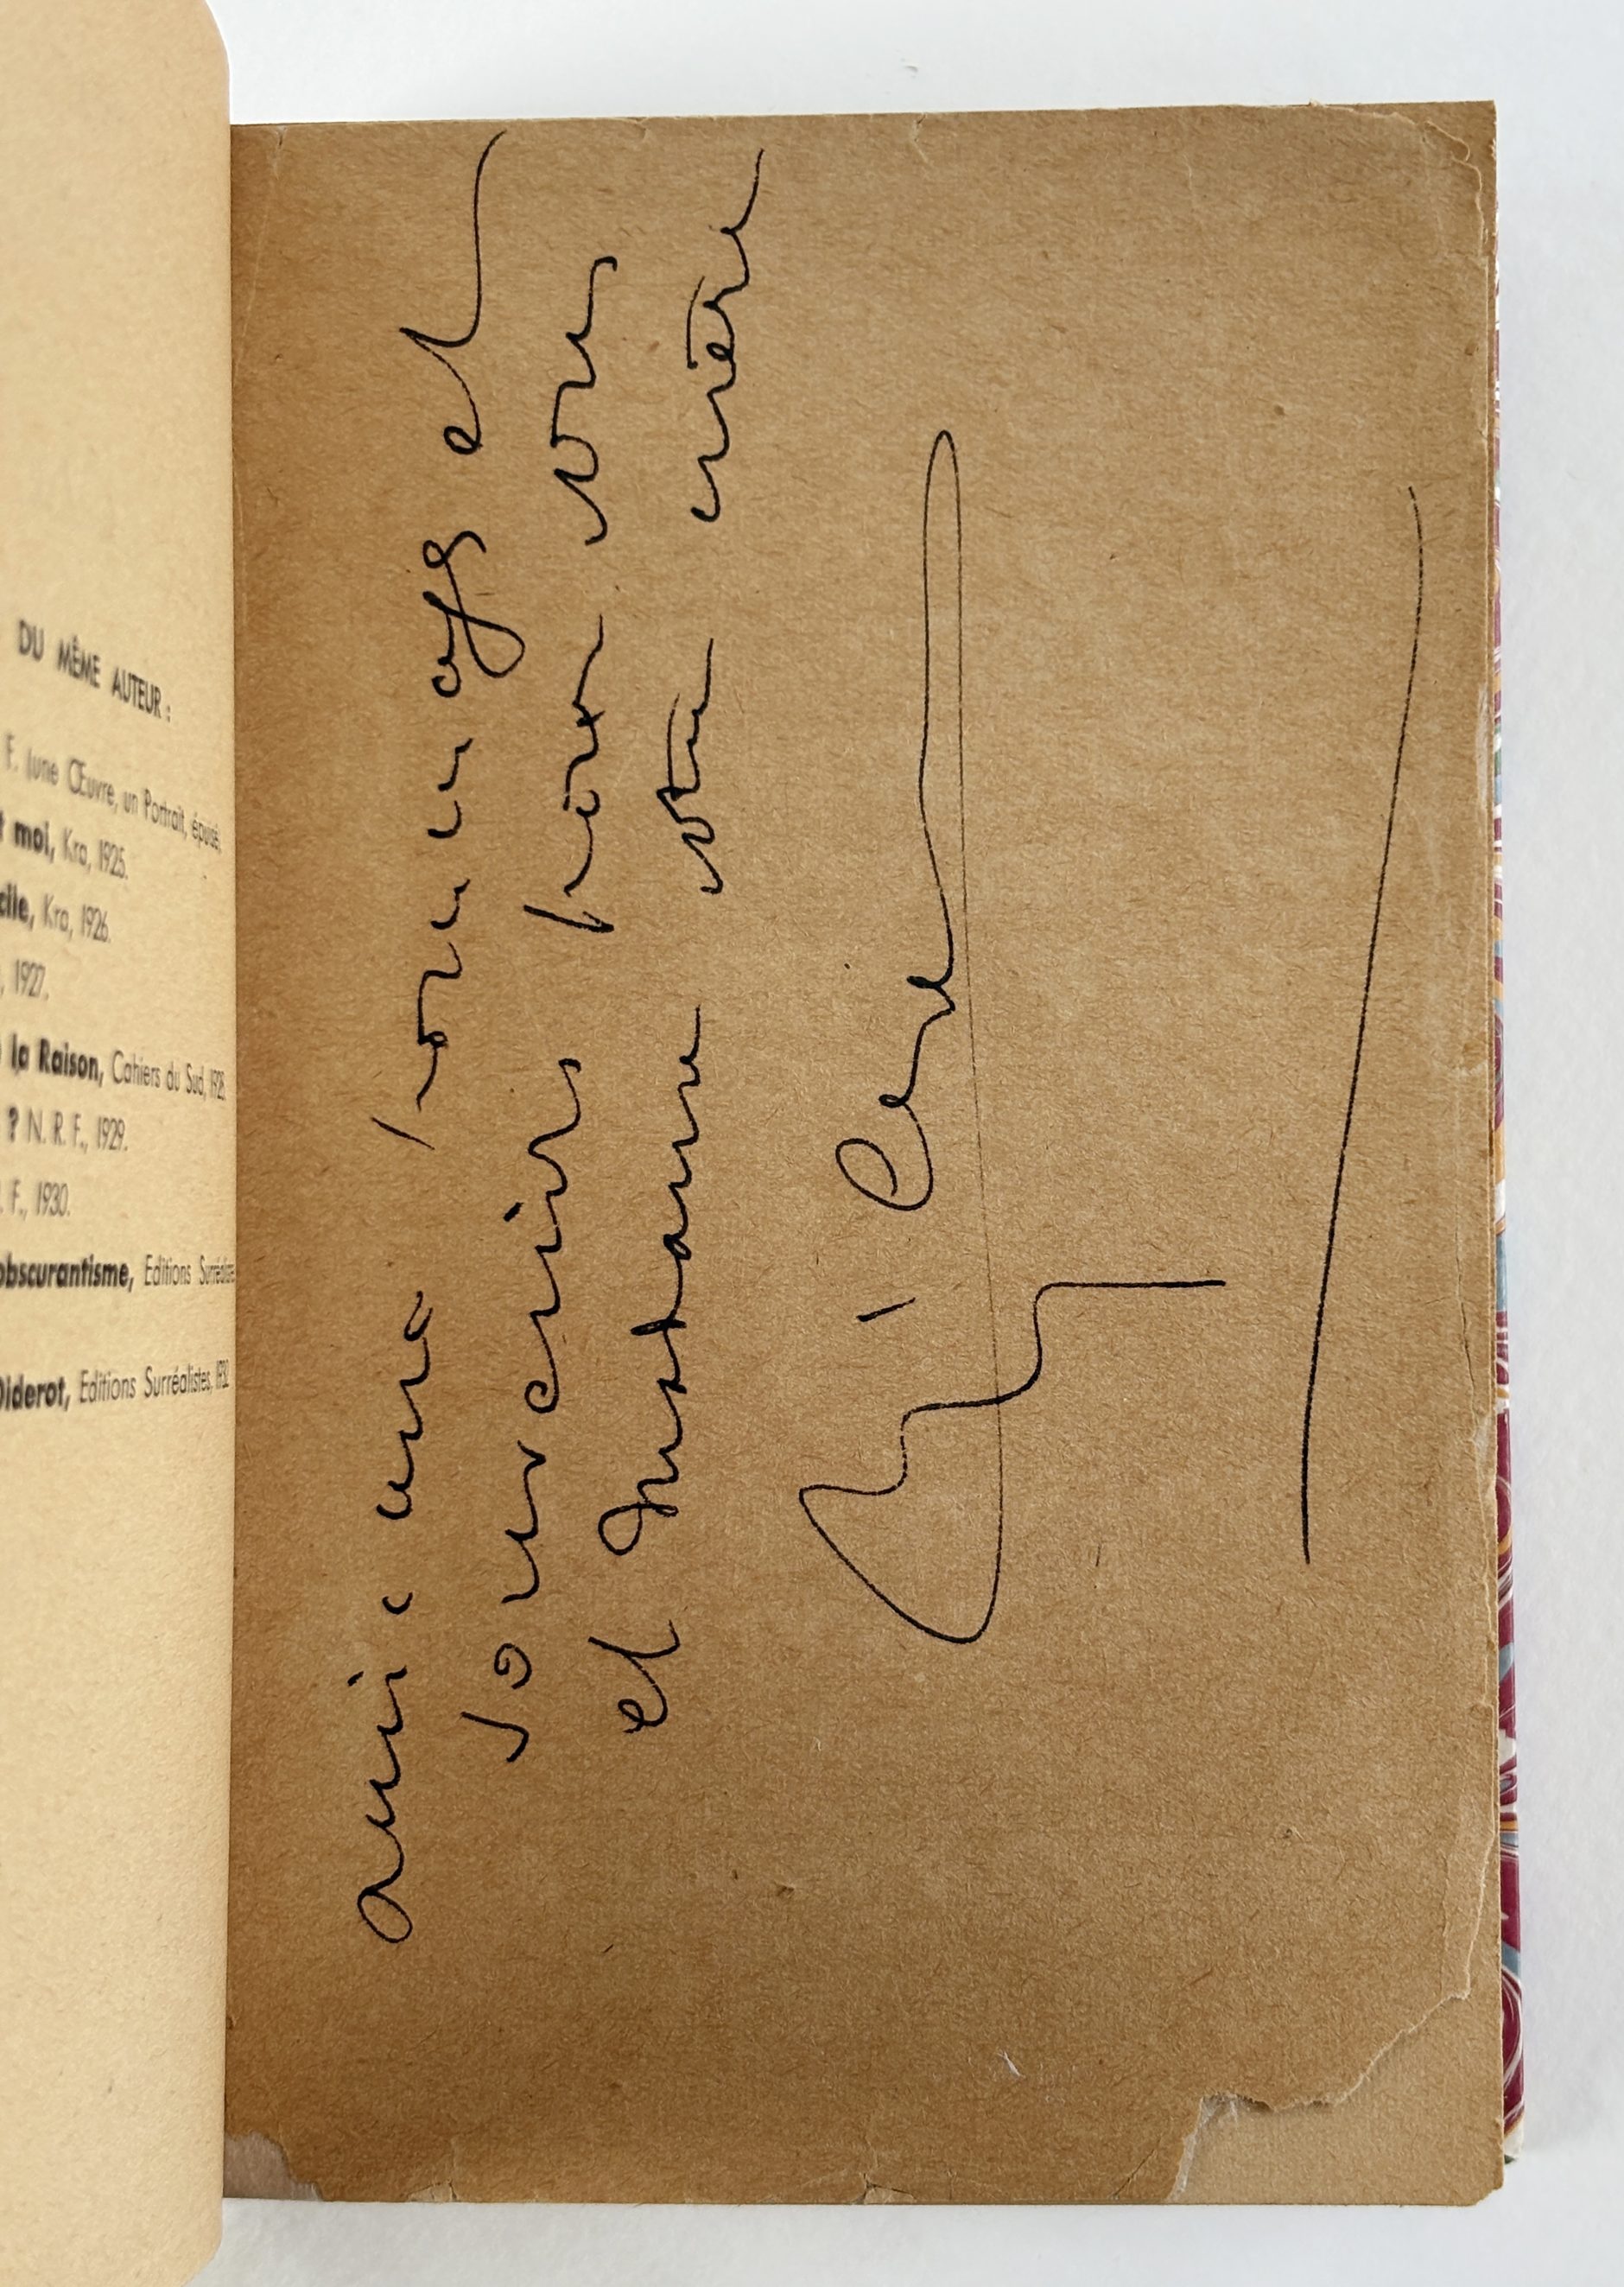 DU MÊME AUTEUR :
F. (une Œuvre, un Portrait, épuisé.
t moi, Kra, 1925.
cile, Kra, 1926.
, 1927.
la Raison, Cahiers du Sud, 1928.
? N. R. F., 1929.
. F., 1930.
obscurantisme, Editions Surréalistes
Diderot, Editions Surréalistes, 1932
amicaux hommages et
souvenirs pour vous
et Madame votre mère
René Crevel